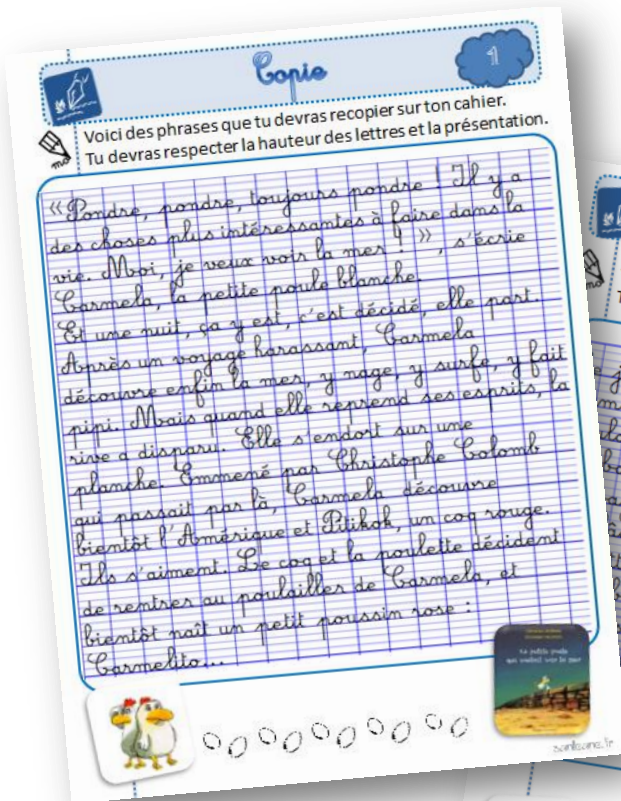 Copie
1
Voici des phrases que tu devras recopier sur ton cahier.
Tu devras respecter la hauteur des lettres et la présentation.
« Pondre, pondre, toujours pondre ! Il y a
des choses plus intéressantes à faire dans la
vie. Moi, je veux voir la mer ! », s'écrie
Carmela, la petite poule blanche.
Et une nuit, ça y est, c'est décidé, elle part.
Après un voyage harassant, Carmela
découvre enfin la mer, y nage, y surfe, y fait
pipi. Mais quand elle reprend ses esprits, la
rive a disparu. Elle s'endort sur une
planche. Emmené par Christophe Colomb
qui passait par là, Carmela découvre
bientôt l'Amérique et Pitikok, un coq rouge.
Ils s'aiment. Le coq et la poulette décident
de rentrer au poulailler de Carmela, et
bientôt naît un petit poussin rose :
Carmelito...
La petite poule
qui voulait voir la mer